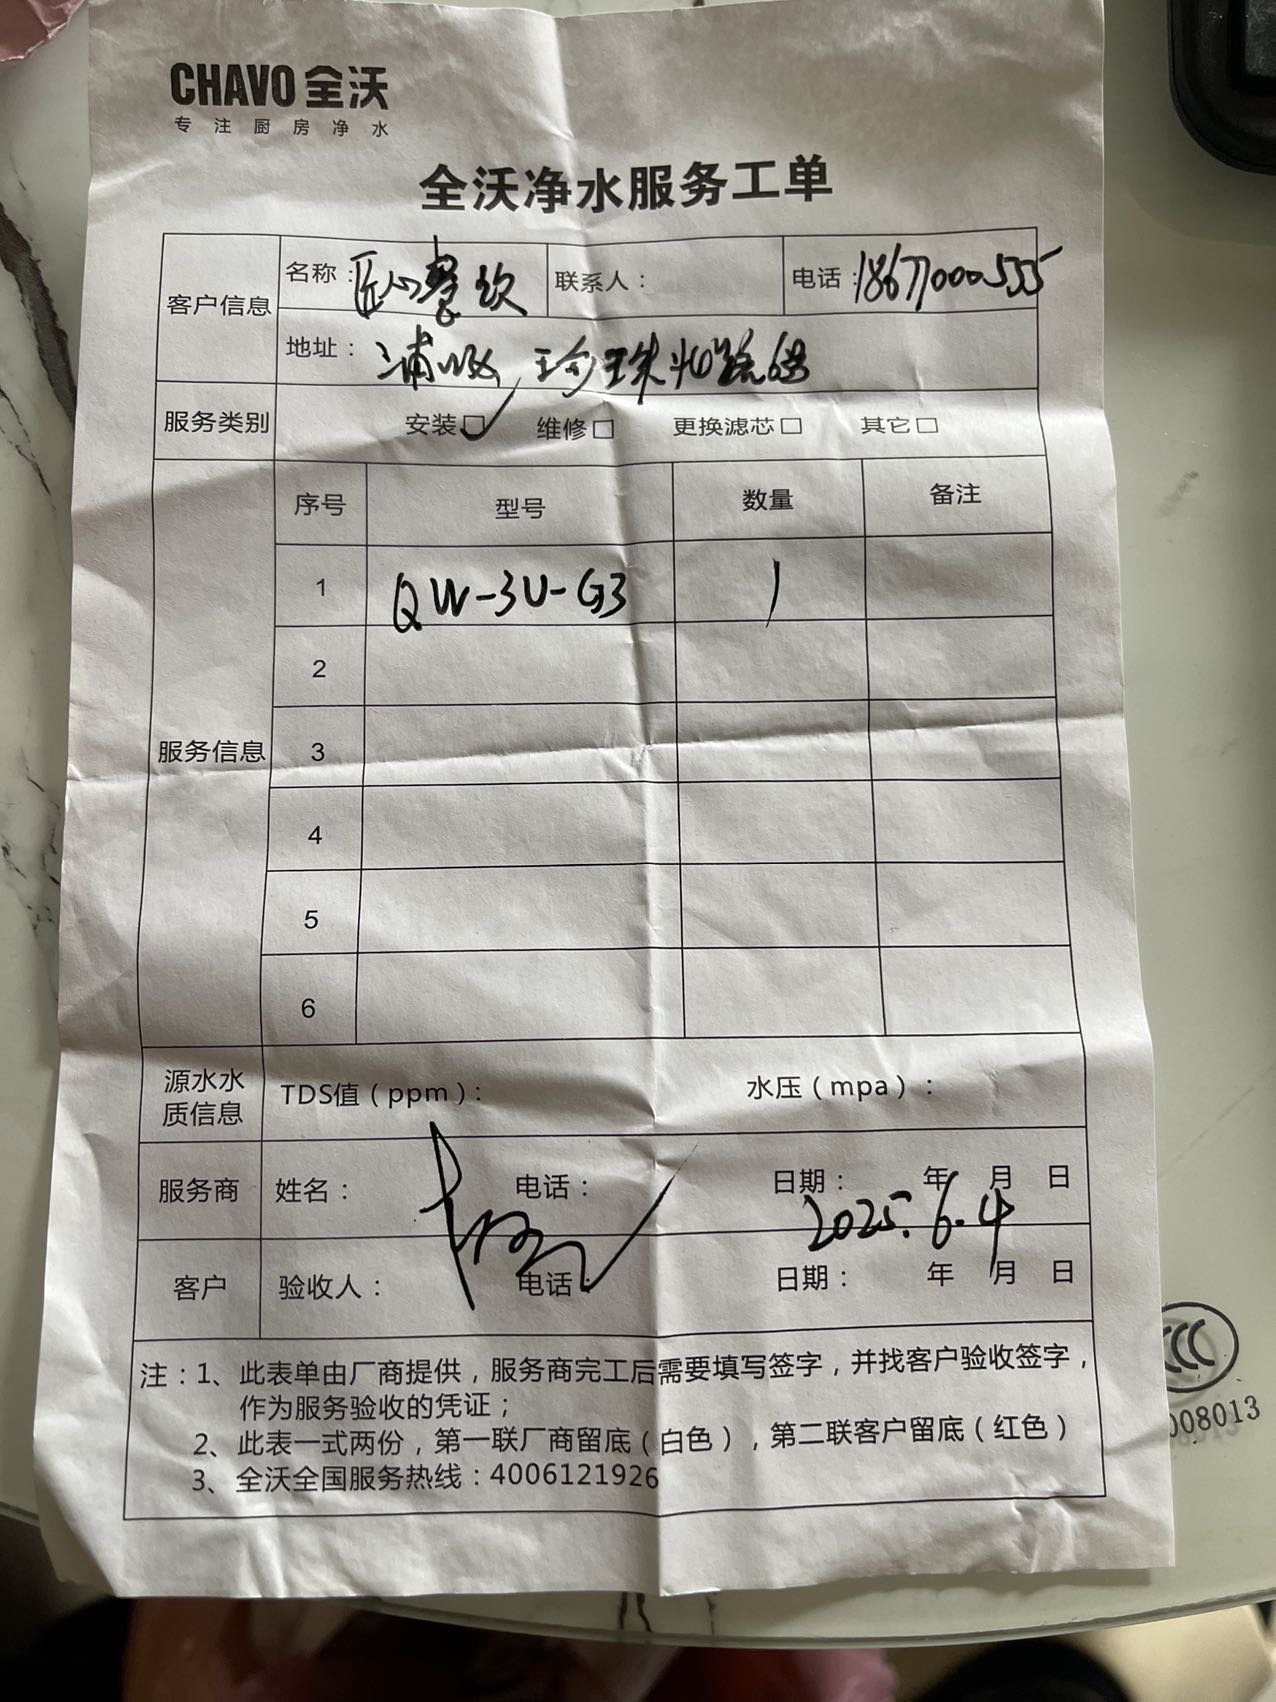 CHAVO 全沃
专注厨房净水
全沃净水服务工单
客户信息 名称：匠心餐饮 联系人： 电话：18677000555
地址：
服务类别 安装☑ 维修□ 更换滤芯□ 其它□
服务信息 序号 型号 数量 备注
1 QW-3U-G3 1
2
3
4
5
6
源水水质信息 TDS值（ppm）： 水压（mpa）：
服务商 姓名： 电话： 日期： 年 月 日
2025.6.4
客户 验收人： 电话 日期： 年 月 日
注：1、此表单由厂商提供，服务商完工后需要填写签字，并找客户验收签字，
作为服务验收的凭证；
2、此表一式两份，第一联厂商留底（白色），第二联客户留底（红色）
3、全沃全国服务热线：4006121926
CCC
008013